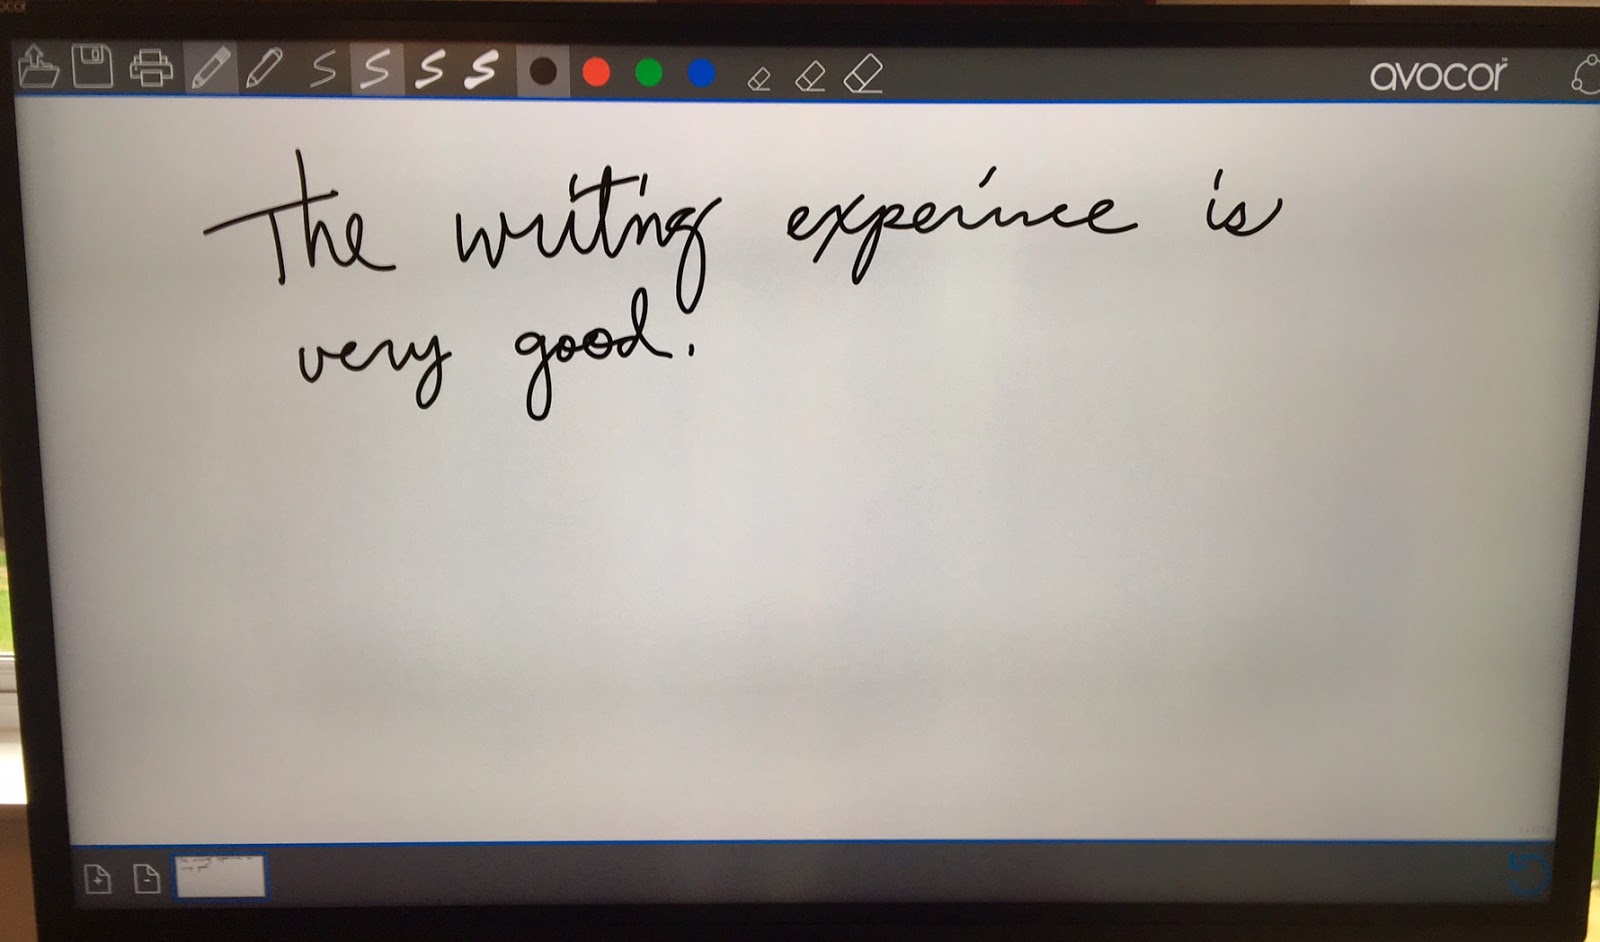 avocor
The writing experince is
very good.